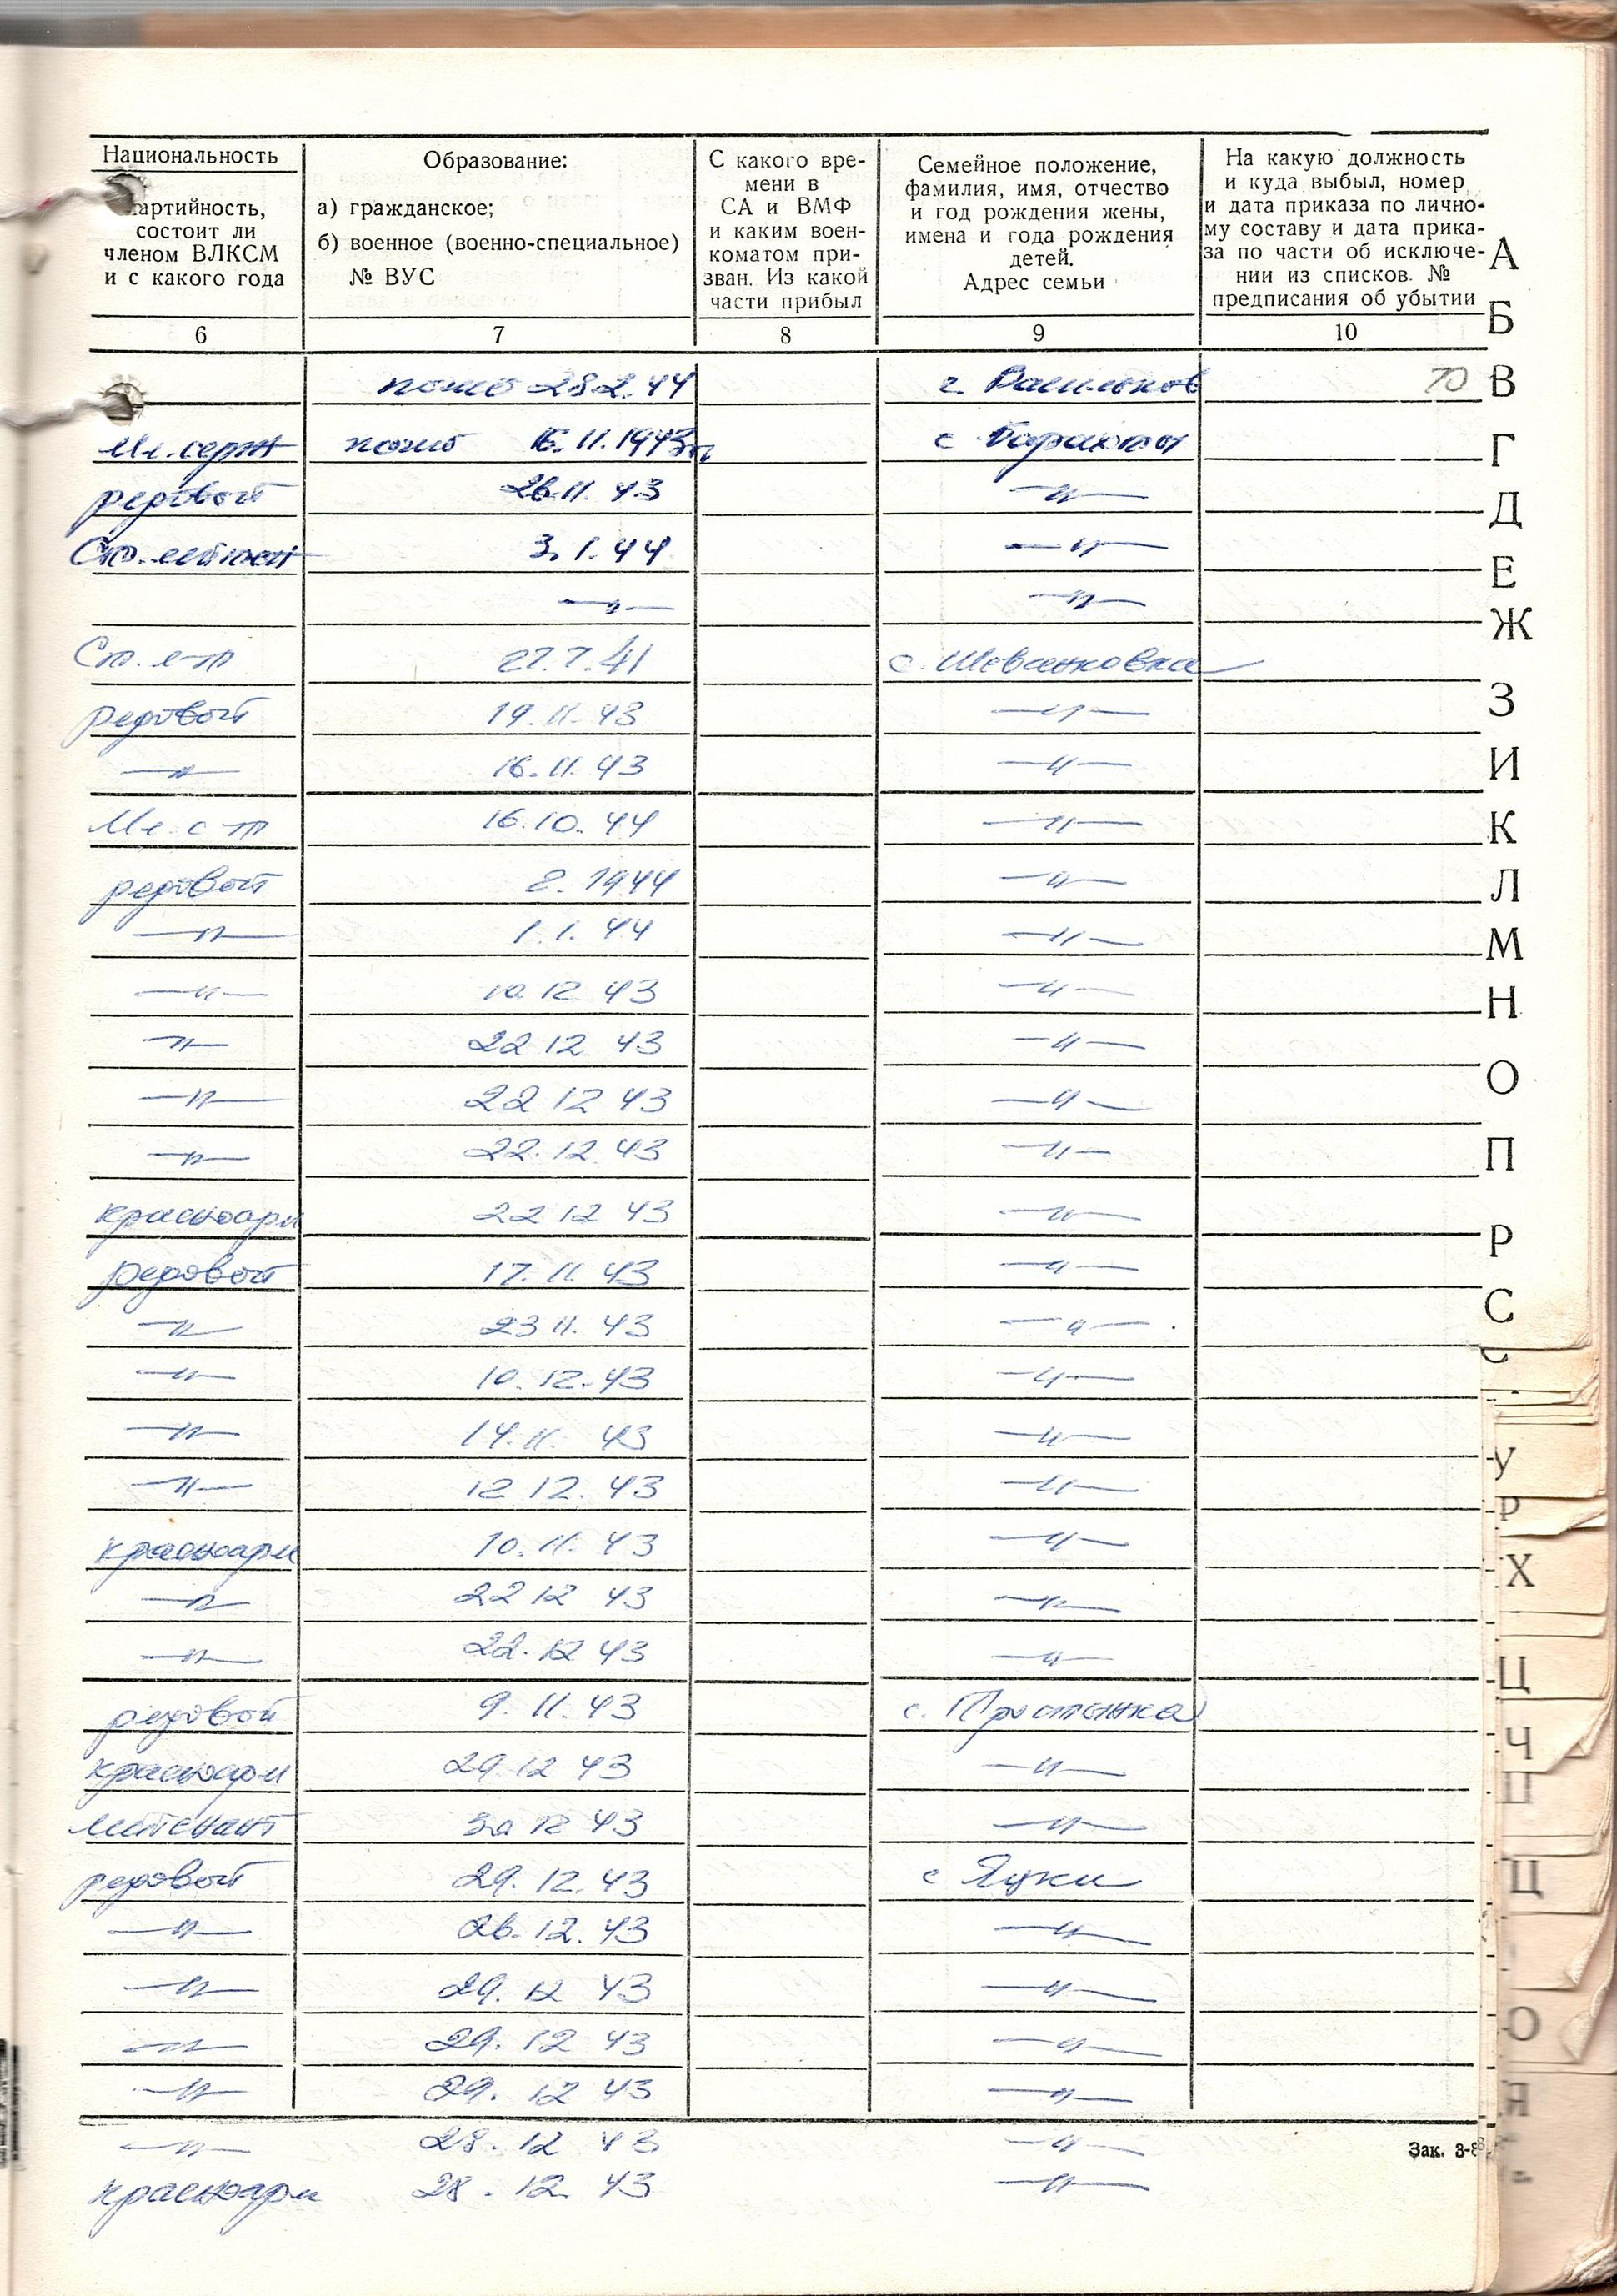 Национальность
партийность,
состоит ли
членом ВЛКСМ
и с какого года
Образование:
а) гражданское;
б) военное (военно-специальное)
№ ВУС
С какого вре-
мени в
СА и ВМФ
и каким воен-
коматом при-
зван. Из какой
части прибыл
Семейное положение,
фамилия, имя, отчество
и год рождения жены,
имена и года рождения
детей.
Адрес семьи
На какую должность
и куда выбыл, номер
и дата приказа по лично-
му составу и дата прика-
за по части об исключе-
нии из списков. №
предписания об убытии
6 7 8 9 10
погиб 28.2.44 г. Васильков 70
Мл. серж погиб 16.11.1943 с.
рядовой 26.11.43 —"—
Ст. лейтен 3.1.44 —"—
—"— —"—
Ст. л-т 27.7.41 с.
рядовой 19.11.43 —"—
—"— 16.11.43 —"—
Мл. с-т 16.10.44 —"—
рядовой 2.1944 —"—
—"— 1.1.44 —"—
—"— 10.12 43 —"—
—"— 22 12 43 —"—
—"— 22 12 43 —"—
—"— 22.12.43 —"—
красноарм 22 12 43 —"—
рядовой 17.11.43 —"—
—"— 23 11.43 —"—
—"— 10.12.43 —"—
—"— 14.11. 43 —"—
—"— 12 12.43 —"—
красноарм 10.11.43 —"—
—"— 22 12 43 —"—
—"— 22.12 43 —"—
рядовой 9.11.43 с.
красноарм 29.12 43 —"—
лейтенант 30 12 43 —"—
рядовой 29.12.43 с Яцки
—"— 26.12.43 —"—
—"— 29.12 43 —"—
—"— 29.12 43 —"—
—"— 29.12 43 —"—
—"— 28.12 43 —"—
красноарм 28.12.43 —"—
Зак. 3-8
А
Б
В
Г
Д
Е
Ж
З
И
К
Л
М
Н
О
П
Р
С
У
Р
Х
Ц
Ч
Ц
О
Я